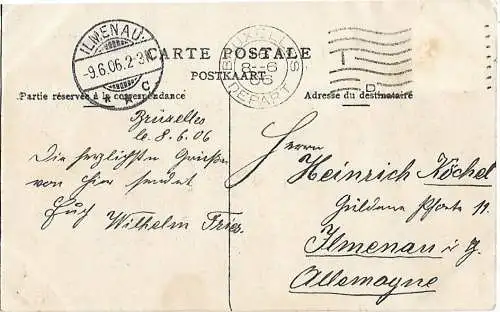 ILMENAU.
-9.6.06.2-3N.
* * C
CARTE POSTALE
POSTKAART
BRUXELLES
8--6
06
DEPART
D
Partie réservée à la correspondance
Adresse du destinataire
Brüxelles
le. 8./6.06
Die herzlichsten Grüsse
von hier sendet
Euch Wilhelm Fries.
Herrn
Heinrich Köchel
Güldene Pforte 11.
Ilmenau i
Allemagne